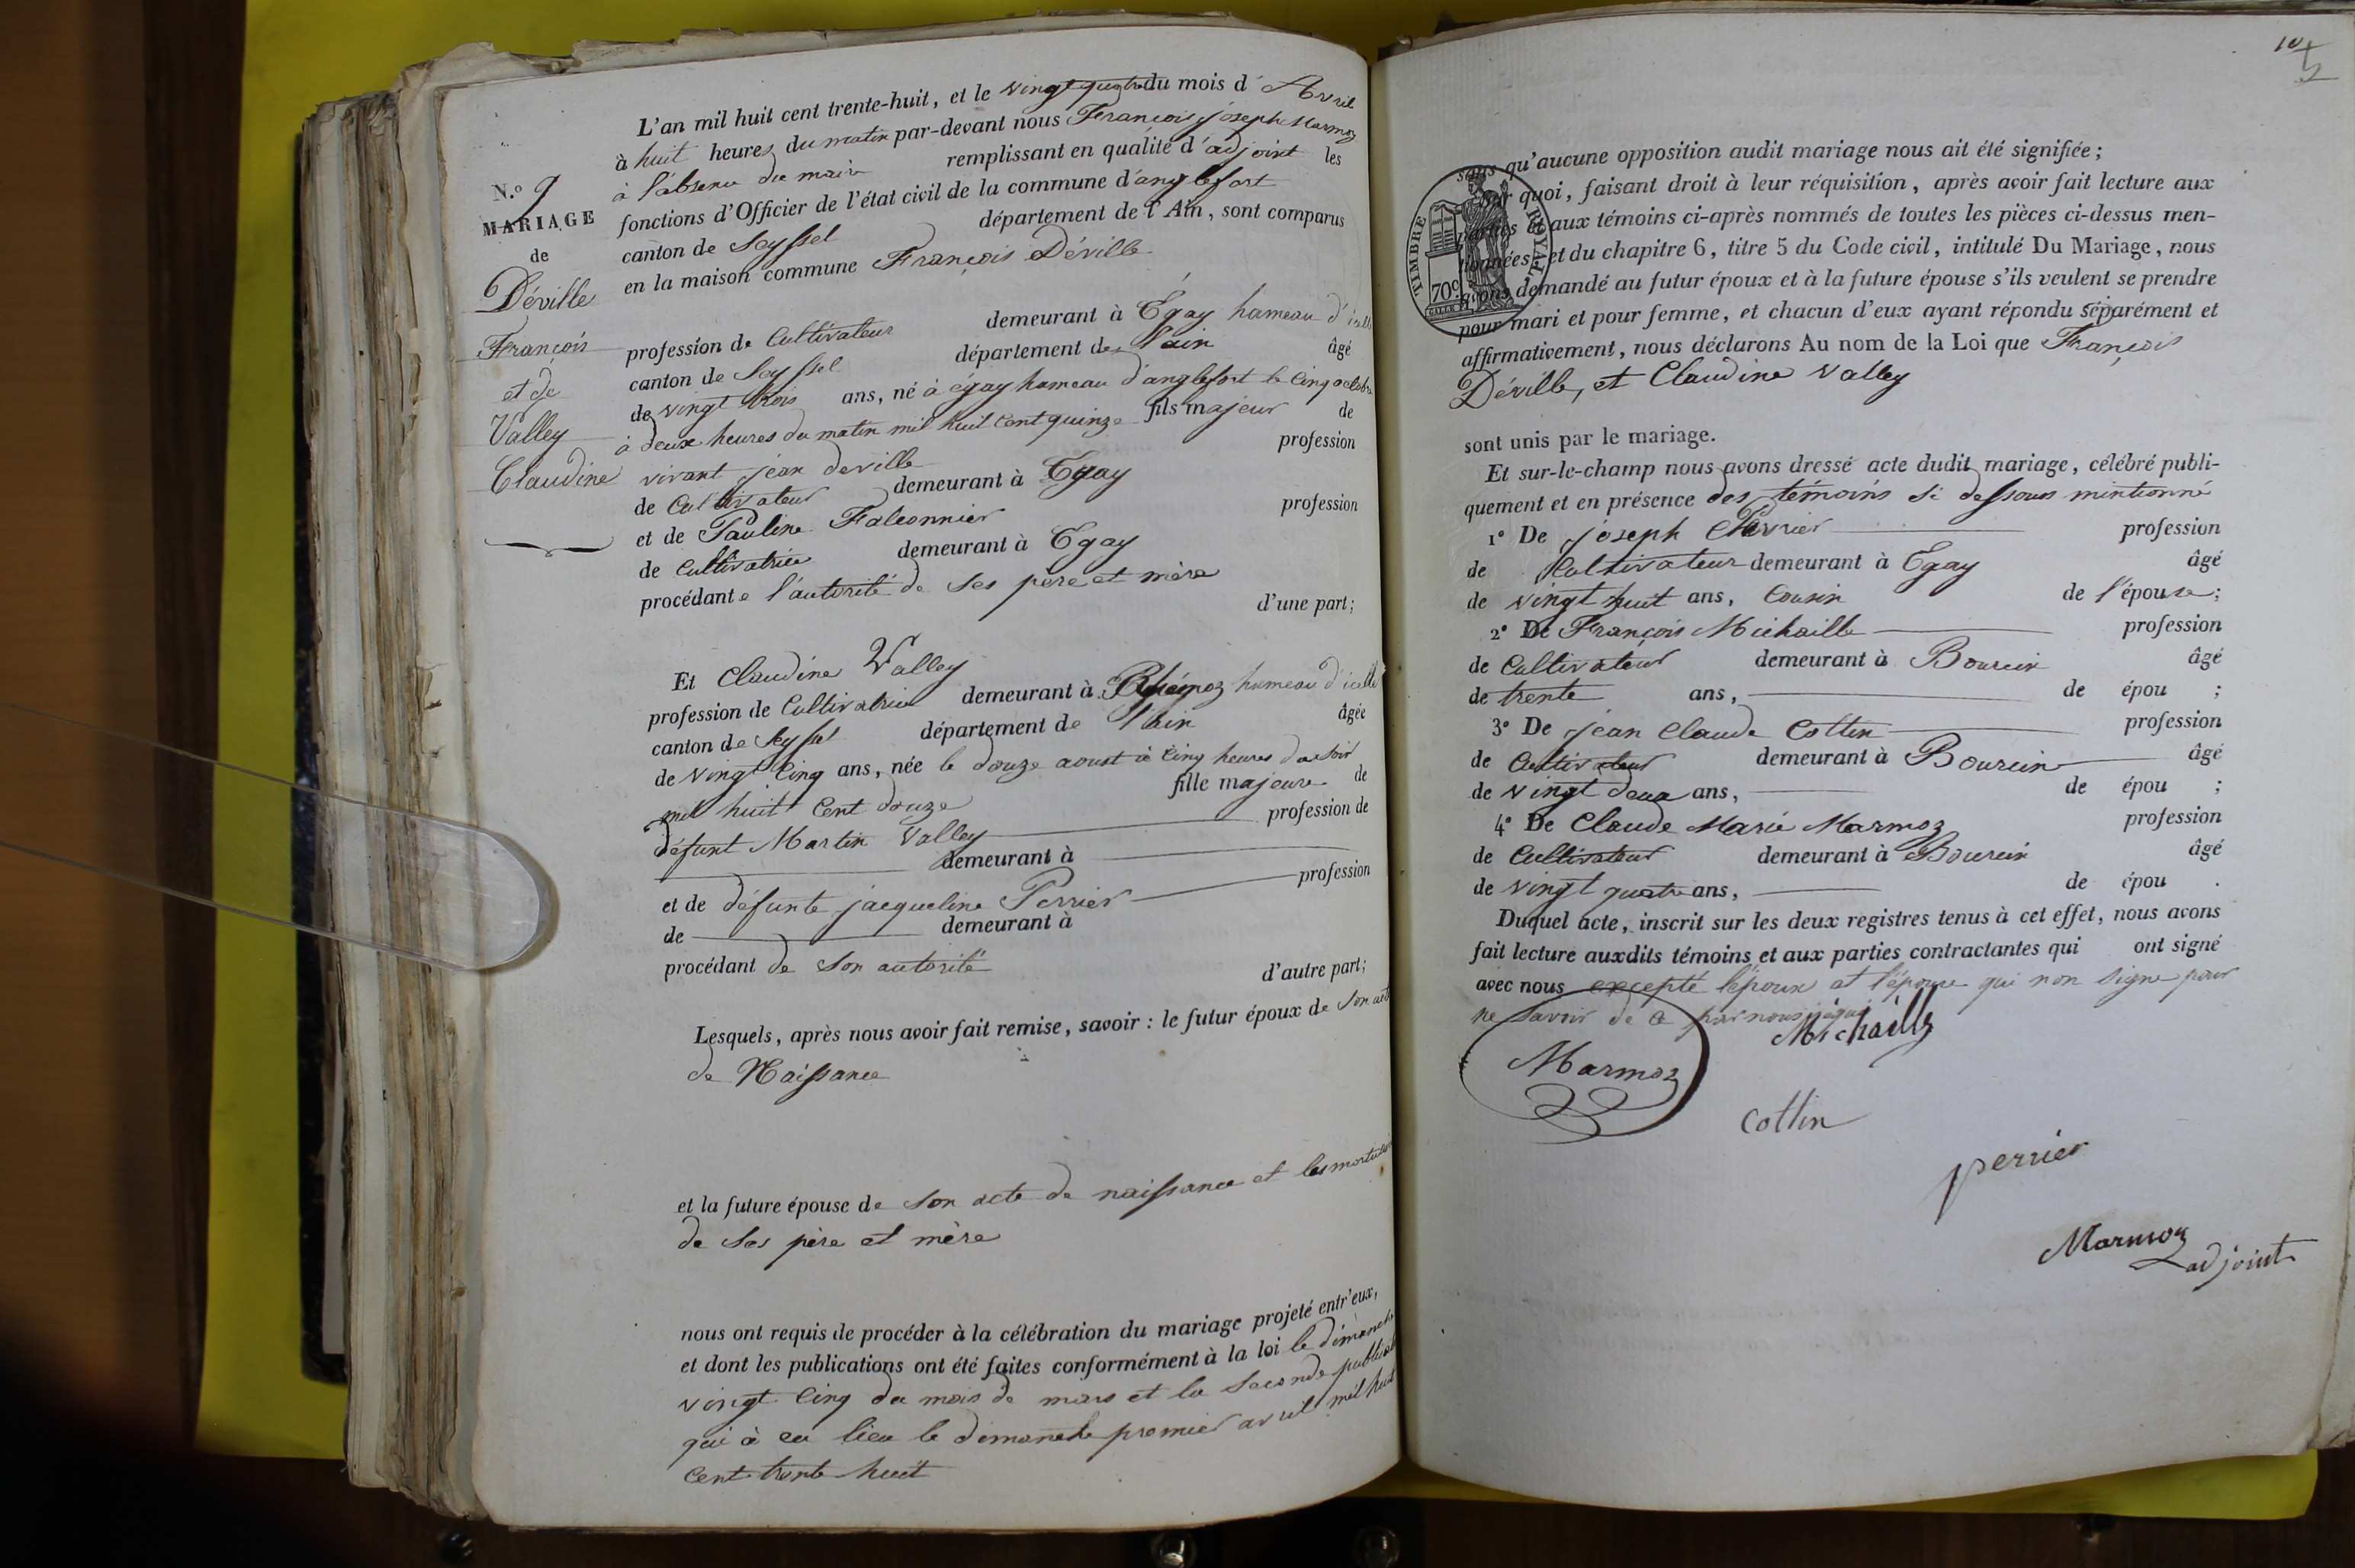 N.º 9
MARIAGE
de
Déville
François
et de
Valley
Claudine
L'an mil huit cent trente-huit, et le vingt quatre du mois d'Avril
à huit heures du matin par-devant nous François joseph Marmoz
à l'absence du maire remplissant en qualité d'adjoint les
fonctions d'Officier de l'état civil de la commune d'anglefort
canton de Seyssel département de l'Ain, sont comparus
en la maison commune François Déville
demeurant à Egay hameau d'icelle
profession de Cultivateur
canton de Seyssel département de l'ain âgé
de vingt trois ans, né à égay hameau d'anglefort le cinq octobre
à deux heures du matin mil huit cent quinze fils majeur de
vivant jean deville profession
de Cultivateur demeurant à Egay
et de Pauline Falconnier profession
de Cultivatrice demeurant à Egay
procédant e l'autorité de ses père et mère
d'une part;
Et Claudine Valley
profession de Cultivatrice demeurant à hameau d'icelle
canton de Seyssel département de l'ain âgée
de vingt cinq ans, née le douze aoust à cinq heures du soir
mil huit cent douze fille majeure de
défunt Martin Valley profession de
demeurant à
et de défunte jacqueline Perrier profession
de demeurant à
procédant de son autorité
d'autre part;
Lesquels, après nous avoir fait remise, savoir : le futur époux de son acte
de Naissance
et la future épouse de son acte de naissance et les mortuaires
de ses père et mère
nous ont requis de procéder à la célébration du mariage projeté entr'eux,
et dont les publications ont été faites conformément à la loi le dimanche
vingt cinq du mois de mars et la seconde publication
qui à eu lieu le dimanche premier avril mil huit
cent trente huit
sans qu'aucune opposition audit mariage nous ait été signifiée ;
Sur quoi, faisant droit à leur réquisition, après avoir fait lecture aux
parties et aux témoins ci-après nommés de toutes les pièces ci-dessus men-
tionnées, et du chapitre 6, titre 5 du Code civil, intitulé Du Mariage, nous
avons demandé au futur époux et à la future épouse s'ils veulent se prendre
pour mari et pour femme, et chacun d'eux ayant répondu séparément et
affirmativement, nous déclarons Au nom de la Loi que François
Déville, et Claudine Valley
TIMBRE ROYAL
70c
sont unis par le mariage.
Et sur-le-champ nous avons dressé acte dudit mariage, célébré publi-
quement et en présence des témoins si dessous mintionné
1º De joseph Perrier profession
de Cultivateur demeurant à Egay âgé
de vingt huit ans, Cousin de l'épouse;
2º De François Michaille profession
de Cultivateur demeurant à Bourcin âgé
de trente ans, de épou ;
3º De jean Claude Cottin profession
de Cultivateur demeurant à Bourcin âgé
de vingt deux ans, de épou ;
4º De Claude Marie Marmoz profession
de Cultivateur demeurant à Bourcin âgé
de vingt quatre ans, de épou .
Duquel acte, inscrit sur les deux registres tenus à cet effet, nous avons
fait lecture auxdits témoins et aux parties contractantes qui ont signé
avec nous excepté l'époux et l'épouse qui non signe pour
ne savoir de ce par nous réquis
Michaille
Marmoz
Cottin
perrier
Marmoz
adjoint